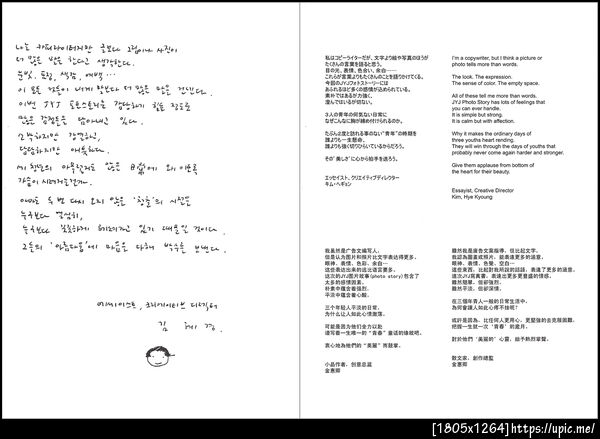 나는 카피라이터지만 글보다 그림이나 사진이
더 많은 말을 한다고 생각한다.
눈빛, 표정, 색감, 여백……
이 모든 것들이 내게 말보다 더 많은 말을 건넨다.
이번 JYJ 포토스토리는 감당하기 힘들 정도로
많은 감정들을 담아내고 있다.
소박하지만 강렬하고,
담담하지만 애틋하다.
세 청년의 아무렇지도 않은 일상에 왜 이토록
가슴이 시려지는걸까.
아마도 두 번 다시 오지 않을 '청춘'의 시절을
누구보다 열심히,
누구보다 헤쳐나가고 있기 때문일 것이다.
그들의 '아름다움'에 마음을 다해 박수를 보낸다.
에세이스트, 크리에이티브 디렉터
김 혜경
私はコピーライターだが、文字より絵や写真のほうが
たくさんの言葉を語ると思う。
目の光、表情、色合い、余白…
これらが言葉よりもたくさんのことを語りかけてくる。
今回のJYJフォトストーリーには
あふれるほど多くの感情が込められている。
素朴ではあるが力強く、
淡々ではいるが切ない。
3人の青年の何気ない日常に
なぜこんなに胸が締め付けられるのか。
たぶん2度と訪れる事のない"青春"の時期を
誰よりも一生懸命、
誰よりも強く切りひらいているからだろう。
その"美しさ"に心から拍手を送ろう。
エッセイスト、クリエイティブディレクター
キム・ヘギョン
I'm a copywriter, but I think a picture or
photo tells more than words.
The look. The expression.
The sense of color. The empty space.
All of these tell me more than words.
JYJ Photo Story has lots of feelings that
you can ever handle.
It is simple but strong.
It is calm but with affection.
Why it makes the ordinary days of
three youths heart rending.
They will win through the days of youths that
probably never come again harder and stronger.
Give them applause from bottom of
the heart for their beauty.
Essayist, Creative Director
Kim, Hye Kyoung
我虽然是广告文编写人，
但是认为图片和照片比文字表达得更多。
眼神、表情、色彩、余白…
这些表达出来的远比语言要多。
这次的JYJ图片故事(photo story)包含了
太多的感情因素。
朴素中蕴含着强烈，
平淡中蕴含着心酸。
三个年轻人平淡的日常，
为什么让人如此心情激荡。
可能是因为他们全力以赴
谱写着一生唯一的"青春"童话的缘故吧。
衷心地为他们的"美丽"而鼓掌。
小品作者，创意总监
金惠卿
雖然我是廣告文案指導，但比起文字，
我認為圖畫或照片，能表達更多的涵意。
眼神、表情、色覺、空白…
這些東西，比起對我所說的話語，表達了更多的涵意。
這次JYJ寫真書，表達出更多更豐盛的情感。
雖然簡單，但卻強烈。
雖然平淡，但卻深情。
在三個年青人一般的日常生活中，
為何會讓人如此心疼不捨呢？
或許是因為，比任何人更用心，更堅強的去克服困難，
把握一生就一次'青春'的歲月。
對於他們'美麗的'心靈，給予熱烈掌聲。
散文家，創作總監
金惠卿
[1805x1264]https://upic.me/